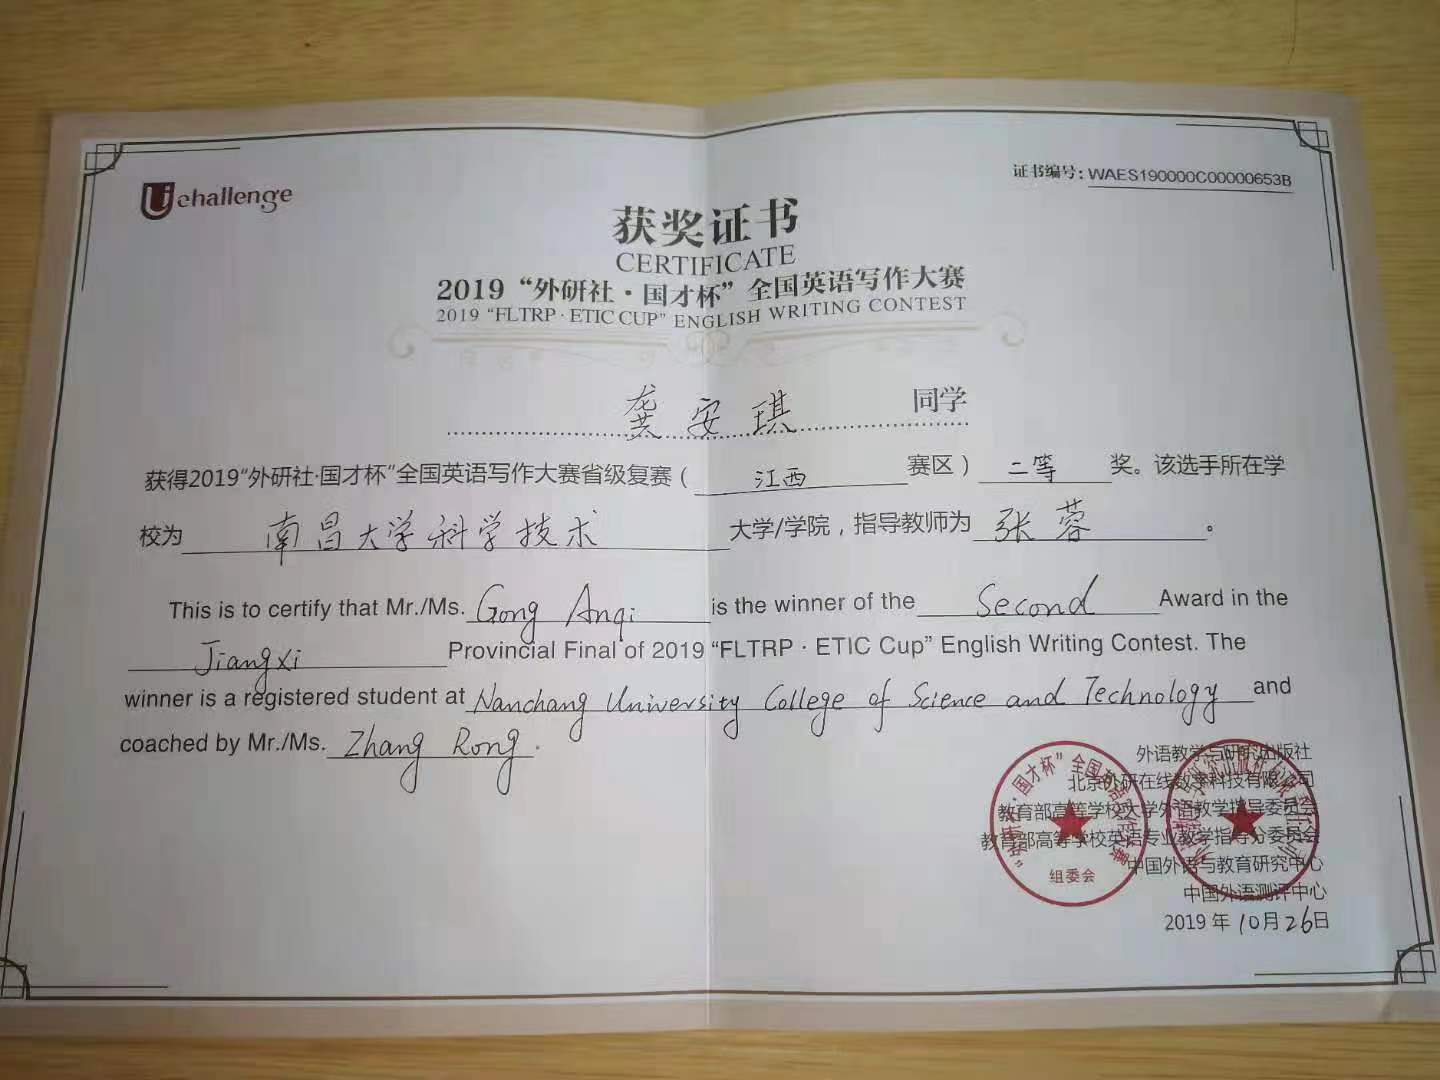 Uichallenge
证书编号: WAES190000C00000653B
获奖证书
CERTIFICATE
2019 “外研社·国才杯” 全国英语写作大赛
2019 “FLTRP · ETIC CUP” ENGLISH WRITING CONTEST
龚安琪 同学
获得2019“外研社·国才杯”全国英语写作大赛省级复赛（ 江西 赛区） 二等 奖。该选手所在学
校为 南昌大学科学技术 大学/学院，指导教师为 张蓉 。
This is to certify that Mr./Ms. Gong Anqi is the winner of the Second Award in the
Jiangxi Provincial Final of 2019 “FLTRP · ETIC Cup” English Writing Contest. The
winner is a registered student at Nanchang University College of Science and Technology and
coached by Mr./Ms. Zhang Rong.
外语教学与研究出版社
北京外研在线数字科技有限公司
教育部高等学校大学外语教学指导委员会
教育部高等学校英语专业教学指导分委员会
中国外语与教育研究中心
中国外语测评中心
2019 年 10月 26日
组委会